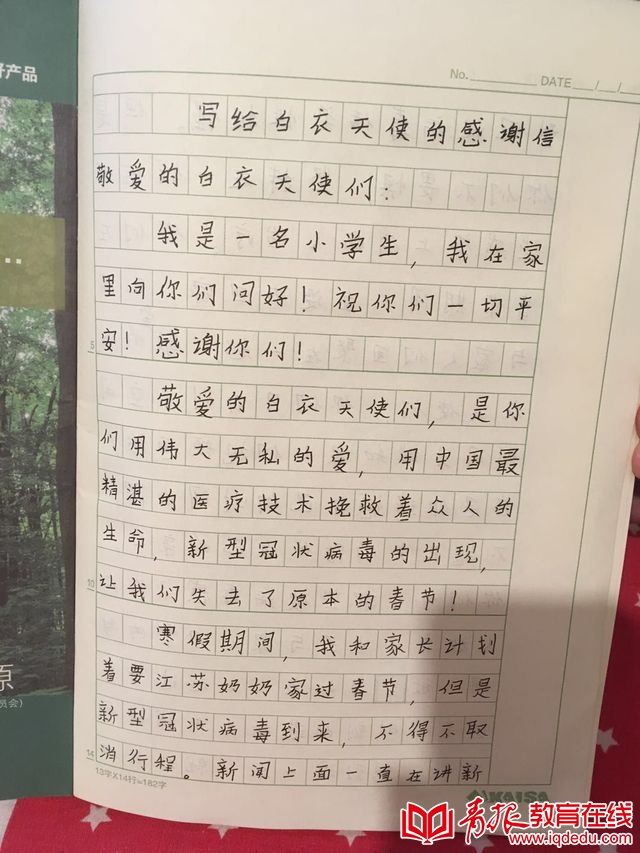 好产品
No. DATE / /
写给白衣天使的感谢信
敬爱的白衣天使们:
我是一名小学生,我在家
里向你们问好!祝你们一切平
安!感谢你们!
5
敬爱的白衣天使们,是你
们用伟大无私的爱,用中国最
精湛的医疗技术挽救着众人的
生命,新型冠状病毒的出现,
让我们失去了原本的春节!
10
寒假期间,我和家长计划
着要江苏奶奶家过春节,但是
新型冠状病毒到来,不得不取
消行程。新闻上面一直在讲新
14
13字X14行=182字
原
员会)
KAISA
青报教育在线
www.iqdedu.com